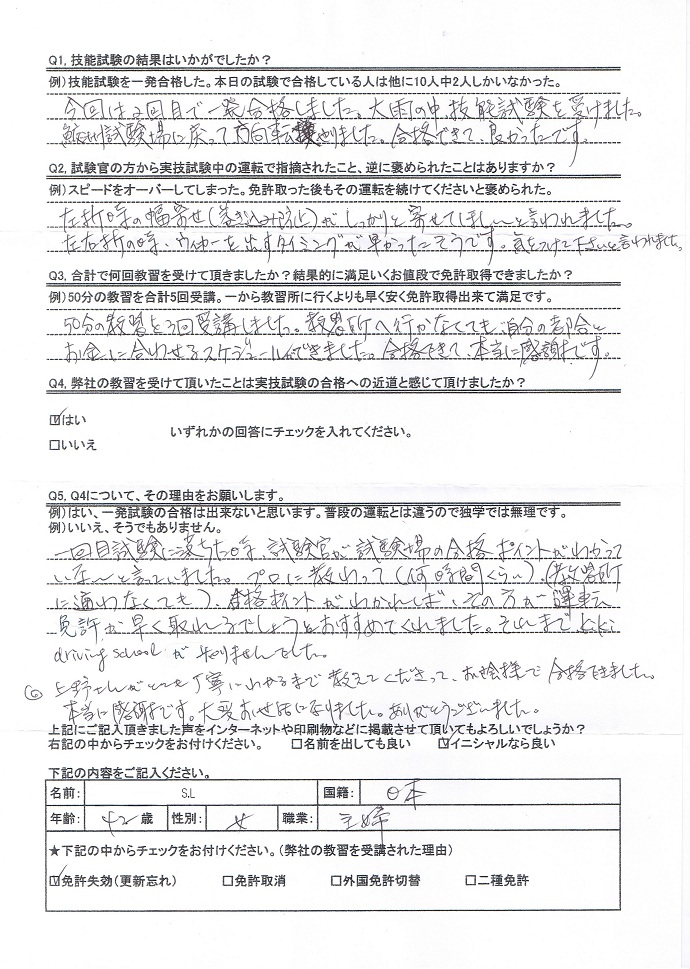 Q1, 技能試験の結果はいかがでしたか？
例）技能試験を一発合格した。本日の試験で合格している人は他に10人中2人しかいなかった。
今回は2回目で一発合格しました。大雨の中、技能試験を受けました。
鮫洲試験場に戻って方向転換やりました。合格できて、良かったです。
Q2, 試験官の方から実技試験中の運転で指摘されたこと、逆に褒められたことはありますか？
例）スピードをオーバーしてしまった。免許取った後もその運転を続けてくださいと褒められた。
左折時の幅寄せ（巻き込み防止）がしっかりと寄せてほしいと言われました。
左右折の時、ウィンカーを出すタイミングが早かったそうです。気をつけて下さいと言われました。
Q3, 合計で何回教習を受けて頂きましたか？結果的に満足いくお値段で免許取得できましたか？
例）50分の教習を合計5回受講。一から教習所に行くよりも早く安く免許取得出来て満足です。
50分の教習を3回受講しました。教習所へ行かなくても、自分の都合と
お金に合わせるスケジュールができました。合格できて、本当に感謝です。
Q4, 弊社の教習を受けて頂いたことは実技試験の合格への近道と感じて頂けましたか？
☑はい
いずれかの回答にチェックを入れてください。
□いいえ
Q5, Q4について、その理由をお願いします。
例）はい、一発試験の合格は出来ないと思います。普段の運転とは違うので独学では無理です。
例）いいえ、そうでもありません。
一回目試験に落ちた時、試験官が試験場の合格ポイントがわかって
いないと言っていました。プロに教わって（何時間くらい）、（教習所
に通わなくても）、合格ポイントがわかれば、その方が運転
免許が早く取れるでしょうとおすすめてくれました。それまで
driving schoolが知りませんでした。
◎ 上野さんがとても丁寧にわかるまで教えてくださって、お陰様で合格できました。
本当に感謝です。大変お世話になりました。ありがとうございました。
上記にご記入頂きました声をインターネットや印刷物などに掲載させて頂いてもよろしいでしょうか？
右記の中からチェックをお付けください。 □名前を出しても良い ☑イニシャルなら良い
下記の内容をご記入ください。
名前： S.L 国籍： 日本
年齢： 42 歳 性別： 女 職業： 主婦
★下記の中からチェックをお付けください。（弊社の教習を受講された理由）
☑免許失効（更新忘れ） □免許取消 □外国免許切替 □二種免許